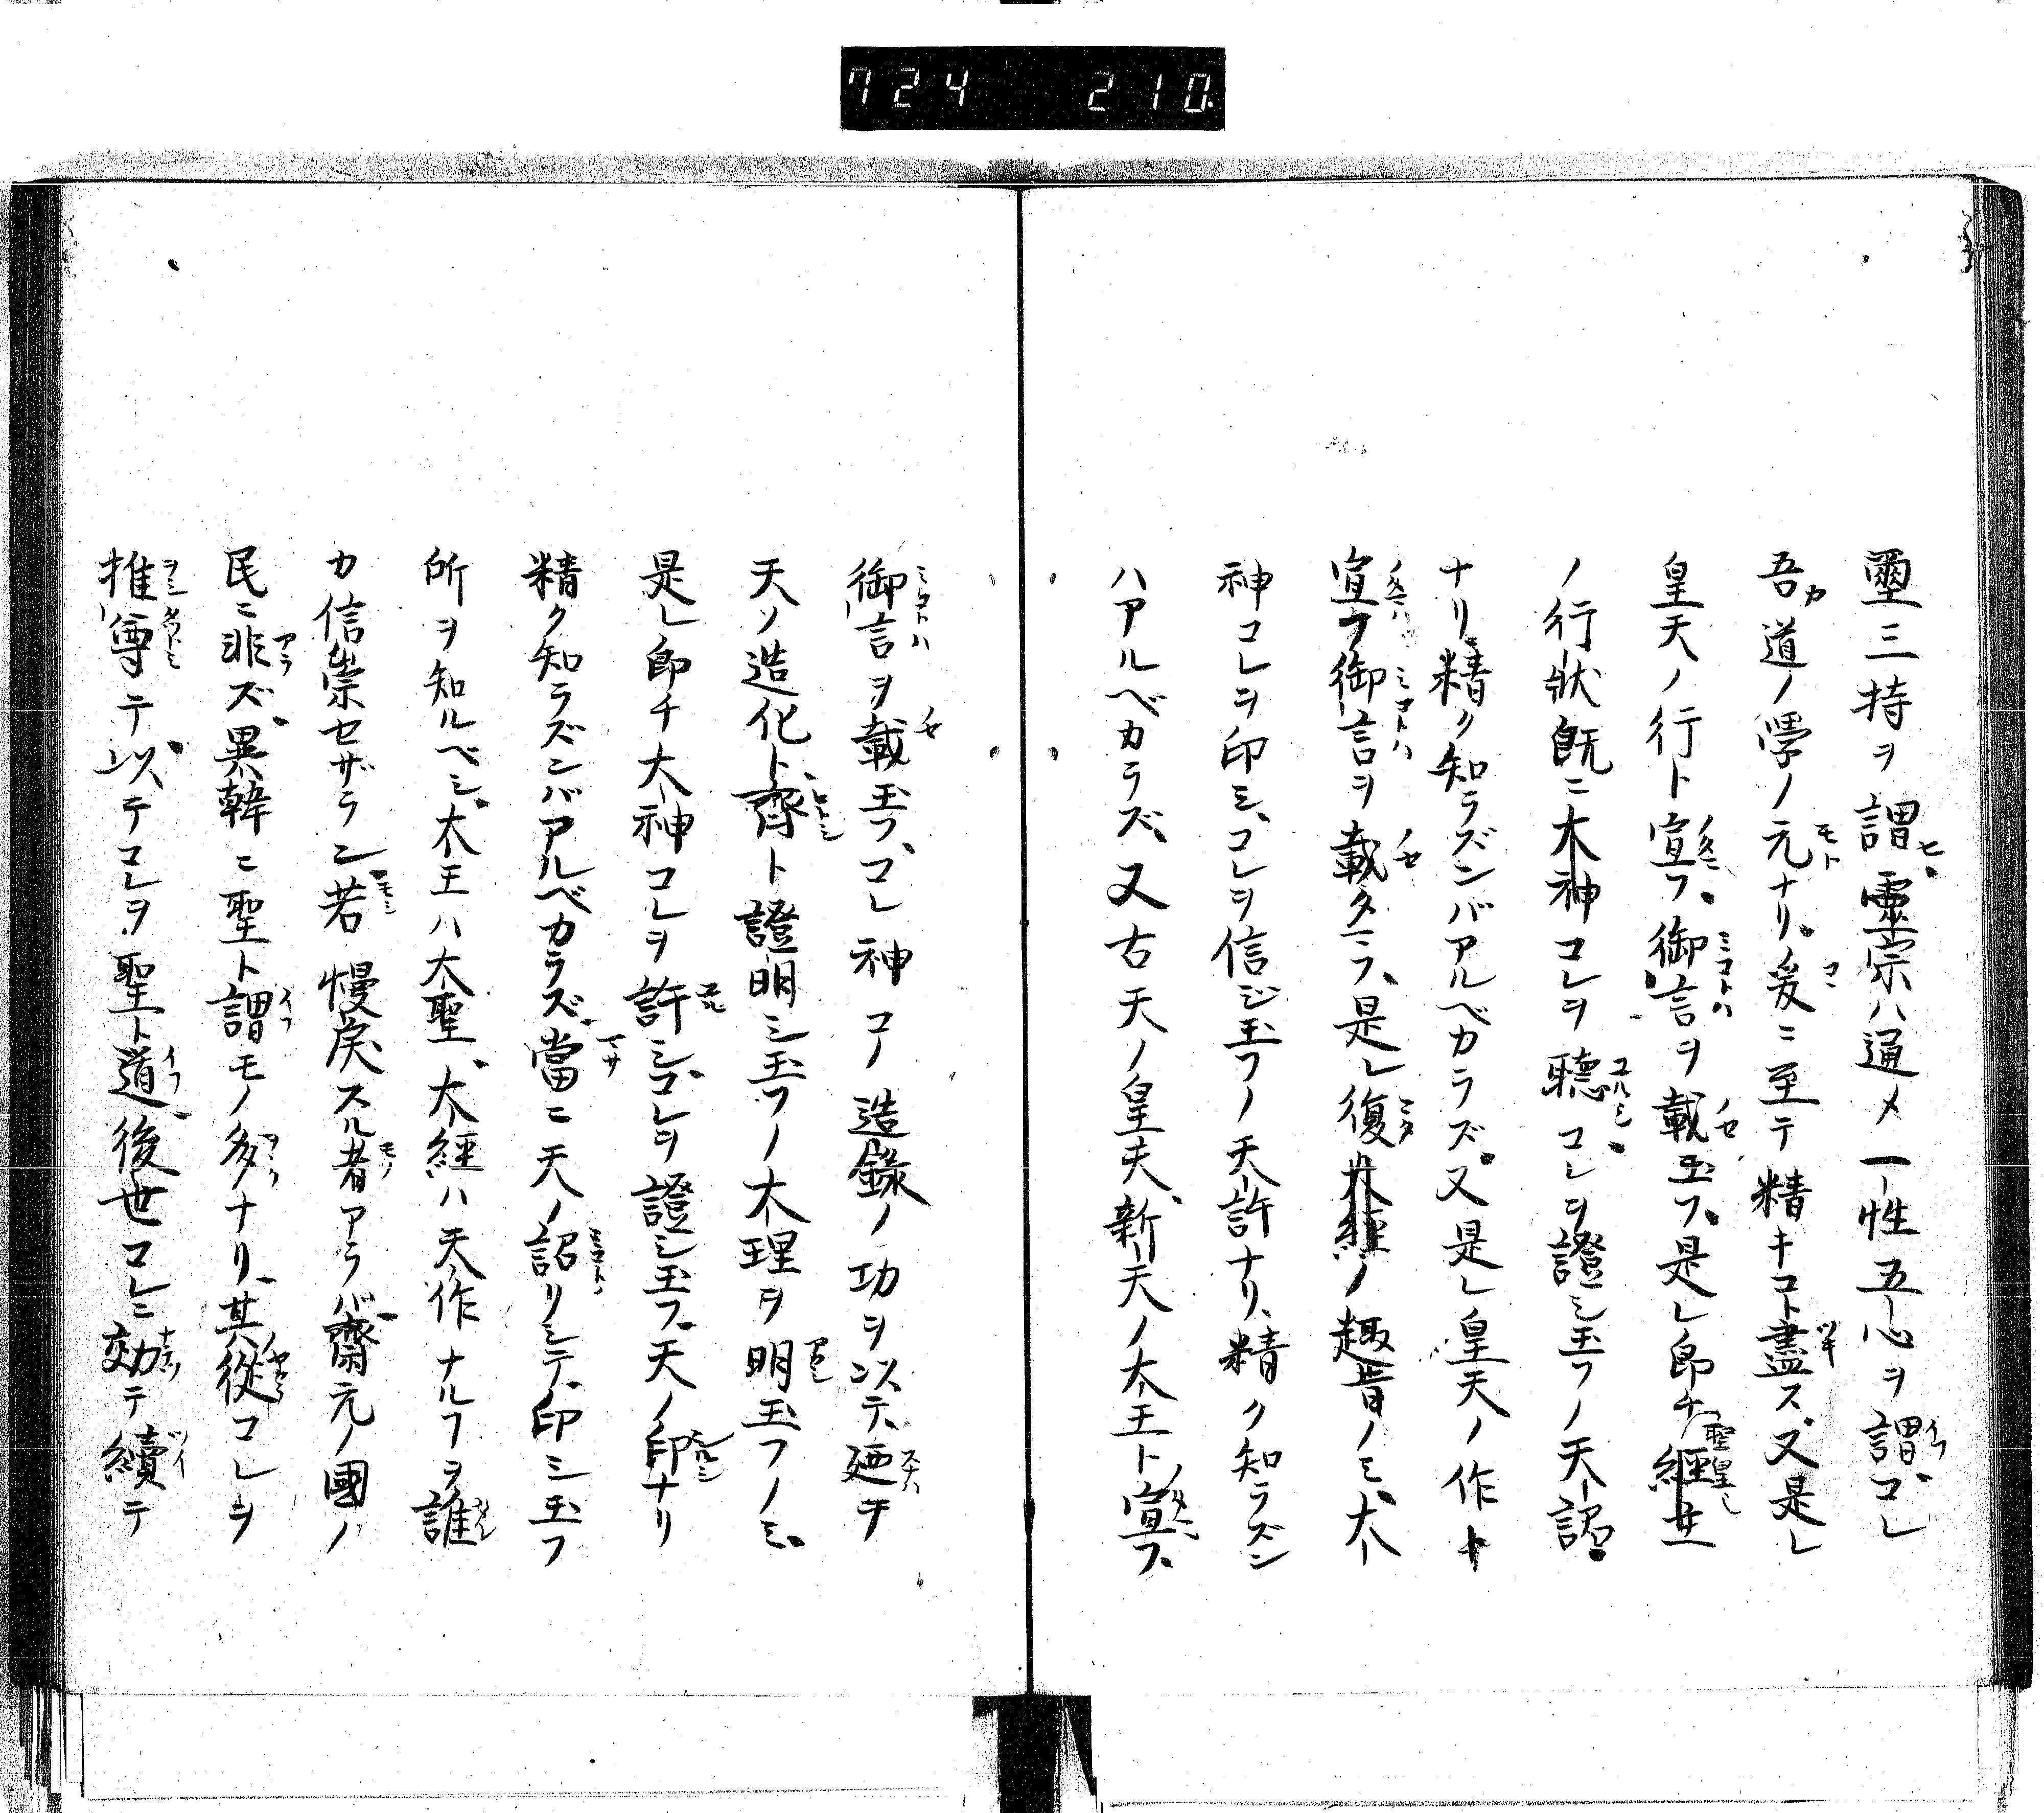 724 210
璽三持ヲ謂ヒ靈宗ハ通メ一性五心ヲ謂コレ
吾道ノ學ノ元ナリ爰ニ至テ精キコト盡ス又是レ
皇天ノ行ト宣フ御言ヲ載玉フ是レ即チ經世
ノ行状既ニ大神コレヲ聴コレヲ證シ玉フノ天詔
ナリ精ク知ラズンバアルベカラズ又是レ皇天ノ作ト
宣フ御言ヲ載タマフ是レ復大經ノ趣旨ノミ大
神コレヲ印ミコレヲ信ジ玉フノ天許ナリ精ク知ラズン
ハアルベカラズ又古天ノ皇夫新天ノ大王ト宣フ
御言ヲ載玉フコレ神コノ造錄ノ功ヲ以テ廼チ
天ノ造化ト齊ト證明シ玉フノ大理ヲ明玉フノミ
是レ即チ大神コレヲ許シコレヲ證シ玉フ天ノ印ナリ
精ク知ラズンバアルベカラズ當ニ天ノ詔リシテ印シ玉フ
所ヲ知ルベシ大王ハ大聖大經ハ天作ナルフヲ誰
カ信崇セザラン若慢戻スル者アラバ齋元ノ國ノ
民ニ非ズ異韓ニ聖ト謂モノ多ナリ其從コレヲ
推尊テ以テコレヲ聖ト道後世コレニ効テ續テ